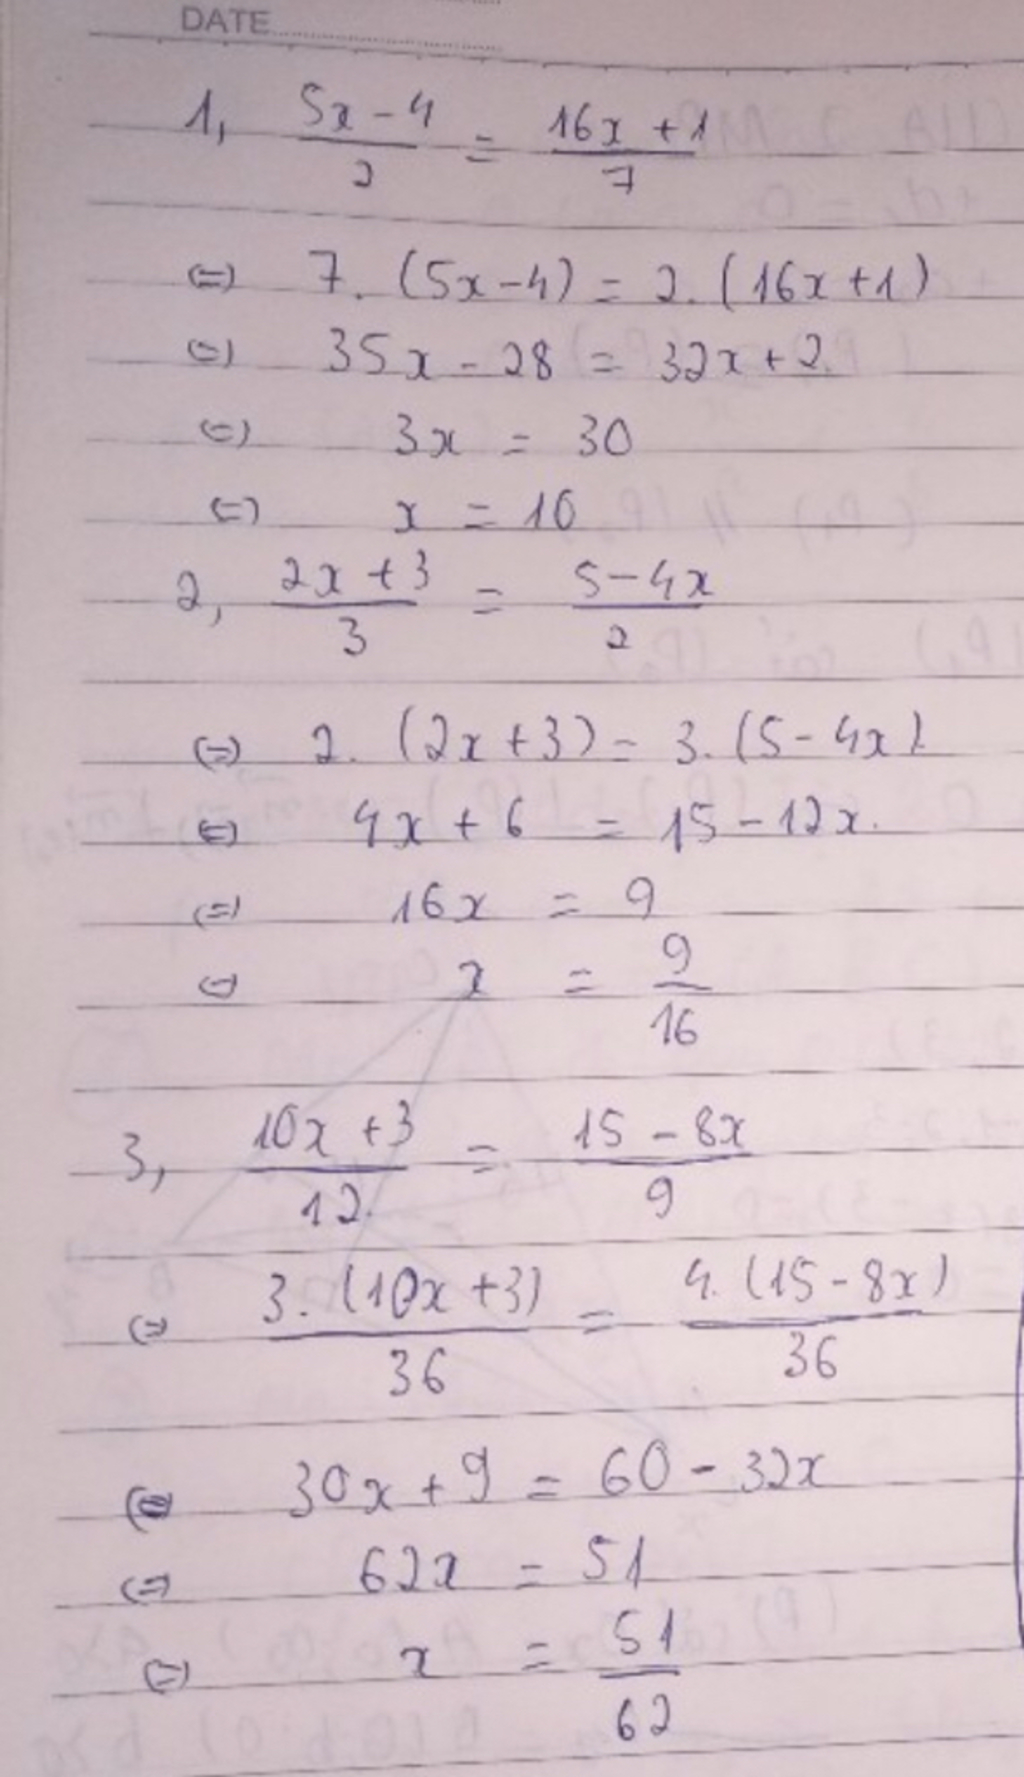 DATE
1, (5x-4)/2 = (16x+1)/7
(=) 7. (5x-4) = 2. (16x+1)
(=) 35x - 28 = 32x + 2
(=) 3x = 30
(=) x = 10
2, (2x+3)/3 = (5-4x)/2
(=) 2. (2x+3) = 3. (5-4x)
(=) 4x + 6 = 15 - 12x.
(=) 16x = 9
(=) x = 9/16
3, (10x+3)/12 = (15-8x)/9
(=) 3. (10x+3)/36 = 4. (15-8x)/36
(=) 30x + 9 = 60 - 32x
(=) 62x = 51
(=) x = 51/62